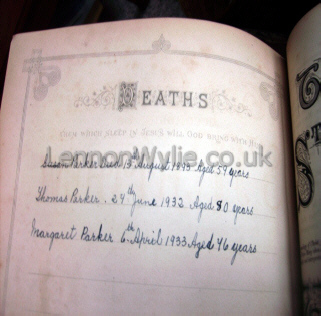 DEATHS
THEM WHICH SLEEP IN JESUS WILL GOD BRING WITH HIM
LennonWylie.co.uk
Susan Parker Died 13th August 1895 Aged 54 years
Thomas Parker. 24th June 1932 Aged 80 years
Margaret Parker 6th April 1933 Aged 46 years